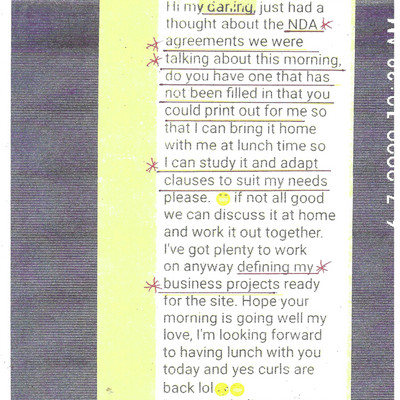 Hi my darling, just had a
thought about the NDA
agreements we were
talking about this morning,
do you have one that has
not been filled in that you
could print out for me so
that I can bring it home
with me at lunch time so
I can study it and adapt
clauses to suit my needs
please. 🙂 if not all good
we can discuss it at home
and work it out together.
I've got plenty to work
on anyway defining my
business projects ready
for the site. Hope your
morning is going well my
love, I'm looking forward
to having lunch with you
today and yes curls are
back lol
AM